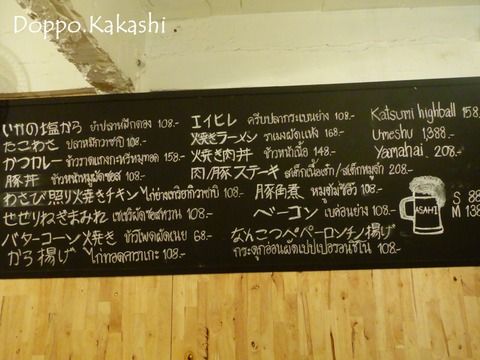 Doppo Kakashi
いかの塩から ยำปลาหมึกดอง 108.-
たこわさ ปลาหมึกวาซาบิ 108.-
かつカレー ข้าวราดแกงกะหรี่หมูทอด 158.-
豚丼 ข้าวหน้าหมูผัดซอส 108.-
わさび照り焼きチキン ไก่ย่างเทริยากิวาซาบิ 108.-
せせりねぎまみれ เซเซริผัดซีอิ๊วหวาน 108.-
バターコーン焼き ข้าวโพดผัดเนย 68.-
から揚げ ไก่ทอดคาราเกะ 108.-
エイヒレ ครีบปลากระเบนย่าง 108.-
焼きラーメン ราเมงผัดแห้ง 168.-
焼き肉丼 ข้าวหน้าเนื้อ 148.-
肉/豚ステーキ สเต็กเนื้อเต่า/สเต็กหมูดำ 208.-
豚角煮 หมูสามชั้น 108.-
ベーコン เบค่อนย่าง 108.-
なんこつペペーロンチノ揚げ
กระดูกอ่อนผัดเปปเปอรอนชิโน 108.-
Katsumi highball 158.
Umeshu 1,388.-
Yamahai 208.-
ASAHI
S 88
M 138